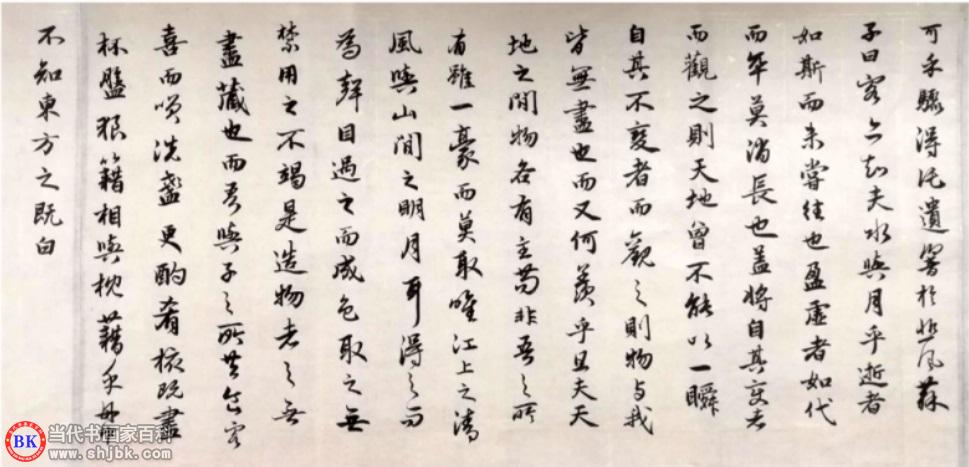 可乎驟得託遺響於悲風蘇
子曰客亦知夫水與月乎逝者
如斯而未嘗往也盈虛者如代
而卒莫消長也盖將自其變者
而觀之則天地曾不能以一瞬
自其不變者而觀之則物与我
皆無盡也而又何羨乎且夫天
地之間物各有主苟非吾之所
有雖一豪而莫取唯江上之清
風與山間之明月耳得之而
為聲目遇之而成色取之無
禁用之不竭是造物者之無
盡藏也而吾與子之所共食客
喜而笑洗盞更酌肴核既盡
杯盤狼籍相與枕藉乎舟中
不知東方之既白
BK
当代书画家百科
www.shjbk.com